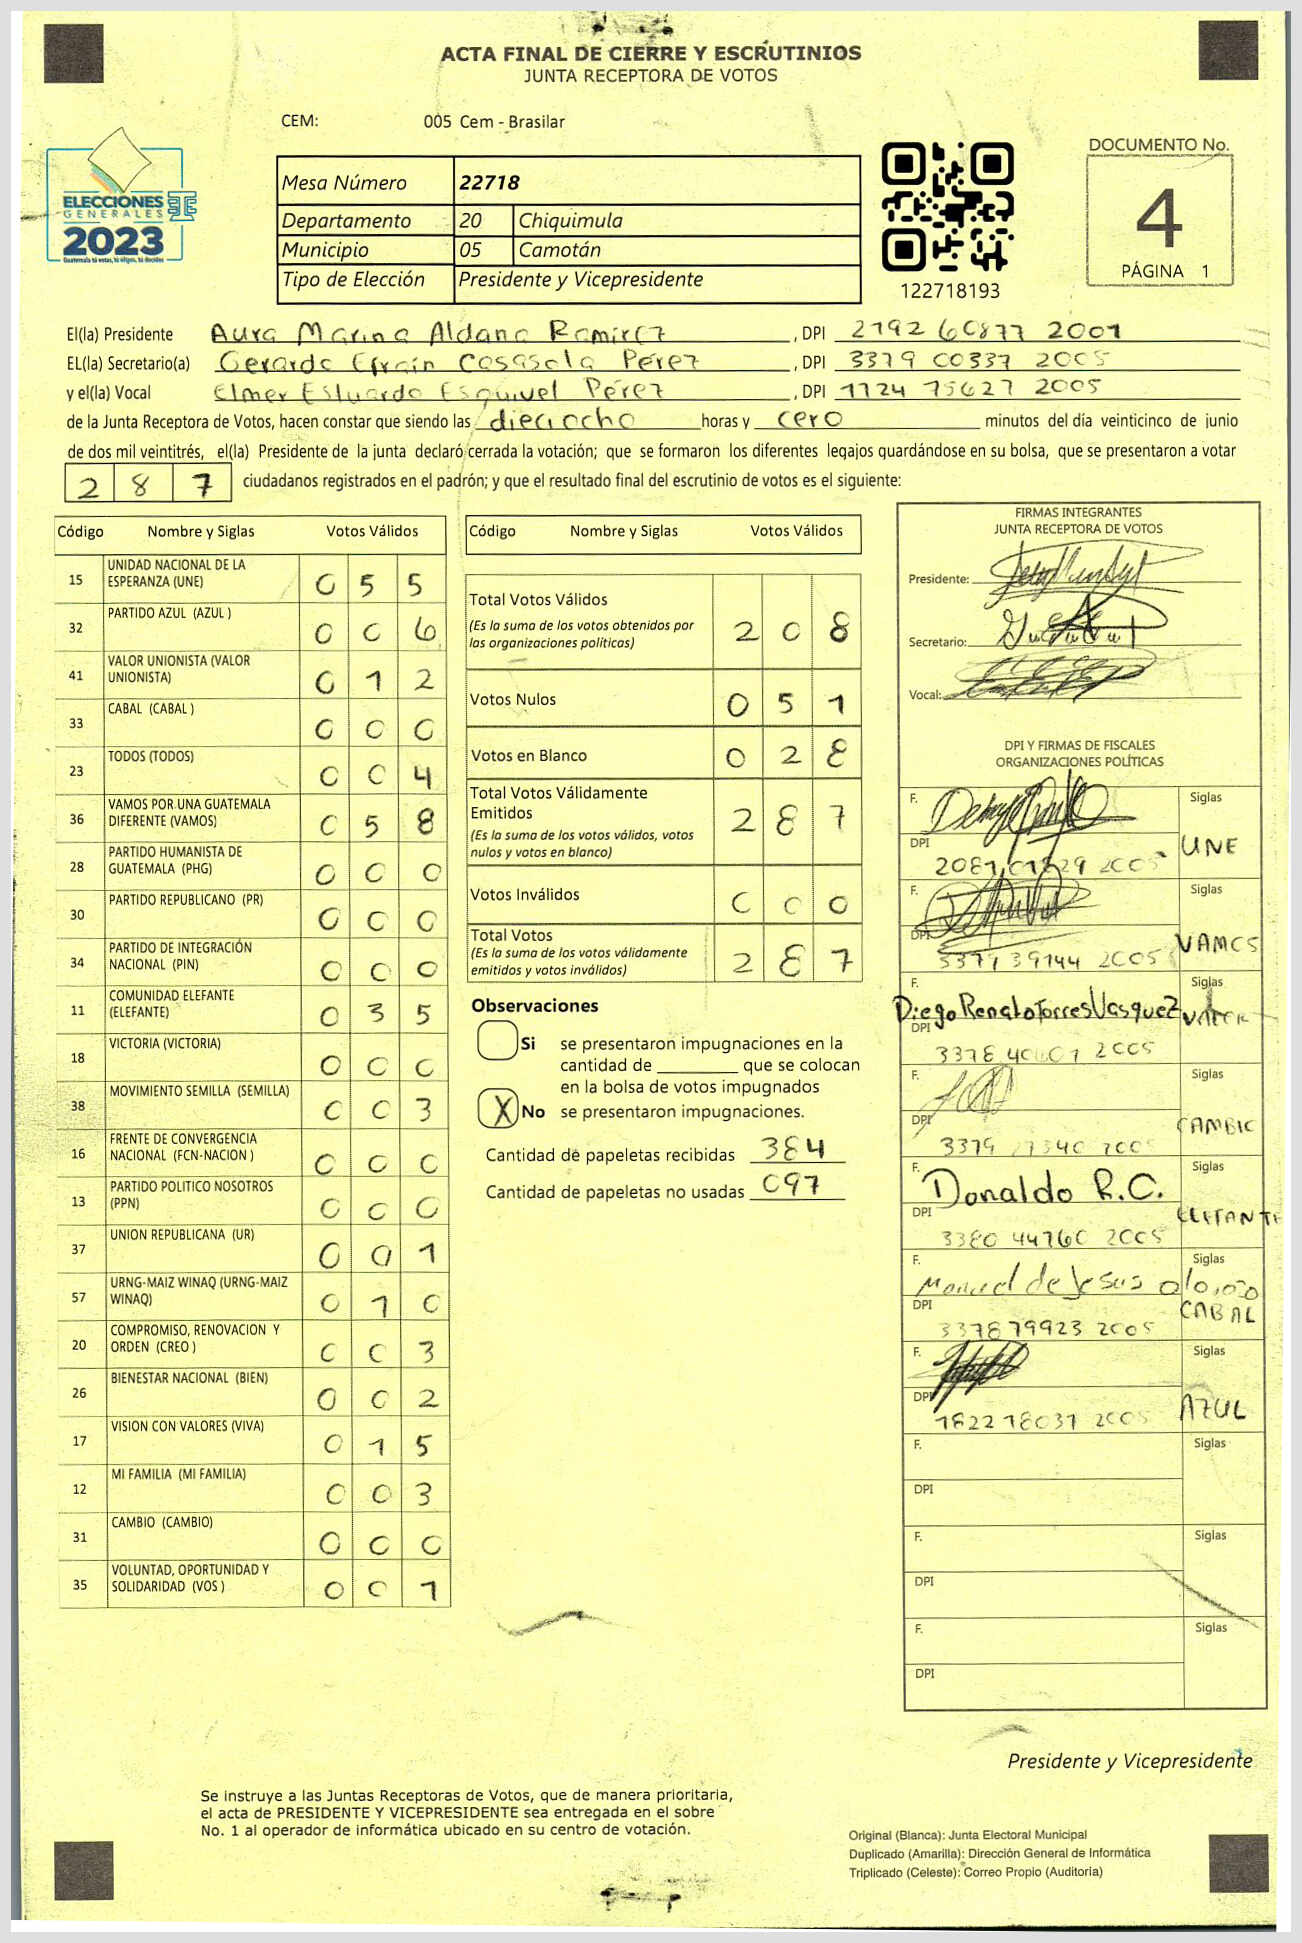 ACTA FINAL DE CIERRE Y ESCRUTINIOS
JUNTA RECEPTORA DE VOTOS
CEM: 005 Cem - Brasilar
ELECCIONES
GENERALES
2023
Guatemala tú votas, tú eliges, tú decides
Mesa Número 22718
Departamento 20 Chiquimula
Municipio 05 Camotán
Tipo de Elección Presidente y Vicepresidente
122718193
DOCUMENTO No.
4
PÁGINA 1
El(la) Presidente Aura Marina Aldana Ramirez, DPI 2192 60877 2001
EL(la) Secretario(a) Gerardo Efraín Casasola Pérez, DPI 3379 00337 2005
y el(la) Vocal Elmer Estuardo Esquivel Pérez, DPI 1724 75627 2005
de la Junta Receptora de Votos, hacen constar que siendo las dieciocho horas y cero minutos del día veinticinco de junio
de dos mil veintitrés, el(la) Presidente de la junta declaró cerrada la votación; que se formaron los diferentes legajos guardándose en su bolsa, que se presentaron a votar
2 8 7 ciudadanos registrados en el padrón; y que el resultado final del escrutinio de votos es el siguiente:
Código Nombre y Siglas Votos Válidos
15 UNIDAD NACIONAL DE LA
ESPERANZA (UNE) 0 5 5
32 PARTIDO AZUL (AZUL ) 0 0 6
41 VALOR UNIONISTA (VALOR
UNIONISTA) 0 1 2
33 CABAL (CABAL ) 0 0 0
23 TODOS (TODOS) 0 0 4
36 VAMOS POR UNA GUATEMALA
DIFERENTE (VAMOS) 0 5 8
28 PARTIDO HUMANISTA DE
GUATEMALA (PHG) 0 0 0
30 PARTIDO REPUBLICANO (PR) 0 0 0
34 PARTIDO DE INTEGRACIÓN
NACIONAL (PIN) 0 0 0
11 COMUNIDAD ELEFANTE
(ELEFANTE) 0 3 5
18 VICTORIA (VICTORIA) 0 0 0
38 MOVIMIENTO SEMILLA (SEMILLA) 0 0 3
16 FRENTE DE CONVERGENCIA
NACIONAL (FCN-NACION ) 0 0 0
13 PARTIDO POLITICO NOSOTROS
(PPN) 0 0 0
37 UNION REPUBLICANA (UR) 0 0 1
57 URNG-MAIZ WINAQ (URNG-MAIZ
WINAQ) 0 1 0
20 COMPROMISO, RENOVACION Y
ORDEN (CREO ) 0 0 3
26 BIENESTAR NACIONAL (BIEN) 0 0 2
17 VISION CON VALORES (VIVA) 0 1 5
12 MI FAMILIA (MI FAMILIA) 0 0 3
31 CAMBIO (CAMBIO) 0 0 0
35 VOLUNTAD, OPORTUNIDAD Y
SOLIDARIDAD (VOS ) 0 0 1
Código Nombre y Siglas Votos Válidos
Total Votos Válidos 2 0 8
(Es la suma de los votos obtenidos por
las organizaciones políticas)
Votos Nulos 0 5 1
Votos en Blanco 0 2 8
Total Votos Válidamente
Emitidos 2 8 7
(Es la suma de los votos válidos, votos
nulos y votos en blanco)
Votos Inválidos 0 0 0
Total Votos
(Es la suma de los votos válidamente
emitidos y votos inválidos) 2 8 7
Observaciones
Si se presentaron impugnaciones en la
cantidad de ________ que se colocan
en la bolsa de votos impugnados
X No se presentaron impugnaciones.
Cantidad de papeletas recibidas 384
Cantidad de papeletas no usadas 097
FIRMAS INTEGRANTES
JUNTA RECEPTORA DE VOTOS
Presidente:
Secretario:
Vocal:
DPI Y FIRMAS DE FISCALES
ORGANIZACIONES POLÍTICAS
F. Siglas
DPI UNE
F. Siglas
DPI 3379 39144 2005 VAMOS
F. Siglas
Diego Renato Torres Vasquez VALOR
DPI
F. Siglas
DPI CAMBIO
F. Siglas
Donaldo R.C.
DPI 3380 44760 2005 ELEFANTE
F. Siglas
Manuel de Jesus
DPI 337879923 2005 CABAL
F. Siglas
DPI 1822 18031 2005 AZUL
F. Siglas
DPI
F. Siglas
DPI
F. Siglas
DPI
Presidente y Vicepresidente
Se instruye a las Juntas Receptoras de Votos, que de manera prioritaria,
el acta de PRESIDENTE Y VICEPRESIDENTE sea entregada en el sobre
No. 1 al operador de informática ubicado en su centro de votación.
Original (Blanca): Junta Electoral Municipal
Duplicado (Amarilla): Dirección General de Informática
Triplicado (Celeste): Correo Propio (Auditoria)